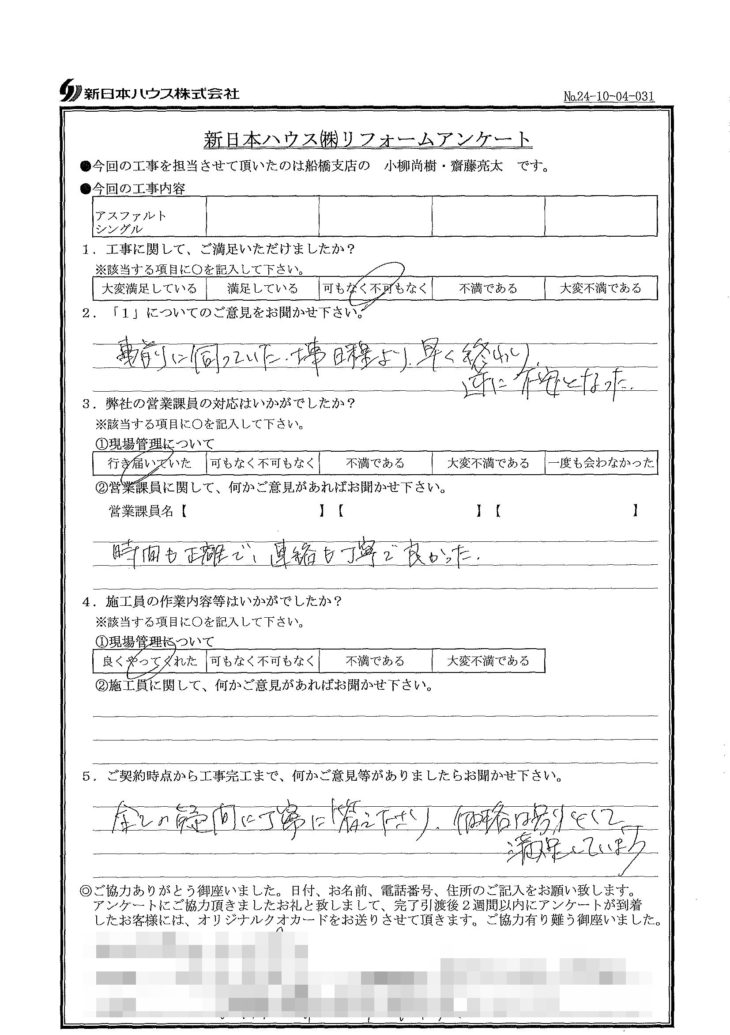 新日本ハウス株式会社
№24-10-04-031
新日本ハウス㈱リフォームアンケート
●今回の工事を担当させて頂いたのは船橋支店の 小柳尚樹・齋藤亮太 です。
●今回の工事内容
アスファルト
シングル
1．工事に関して、ご満足いただけましたか？
※該当する項目に○を記入して下さい。
大変満足している 満足している 可もなく不可もなく 不満である 大変不満である
2．「1」についてのご意見をお聞かせ下さい。
事前に伺っていた工事日程より、早く終わり、
逆に不安となった。
3．弊社の営業課員の対応はいかがでしたか？
※該当する項目に○を記入して下さい。
①現場管理について
行き届いていた 可もなく不可もなく 不満である 大変不満である 一度も会わなかった
②営業課員に関して、何かご意見があればお聞かせ下さい。
営業課員名【 】【 】【 】
時間も正確で、連絡も丁寧で良かった。
4．施工員の作業内容等はいかがでしたか？
※該当する項目に○を記入して下さい。
①現場管理について
良くやってくれた 可もなく不可もなく 不満である 大変不満である
②施工員に関して、何かご意見があればお聞かせ下さい。
5．ご契約時点から工事完工まで、何かご意見等がありましたらお聞かせ下さい。
全ての疑問に丁寧に答えて下さり、価格は別として
満足しています
◎ご協力ありがとう御座いました。日付、お名前、電話番号、住所のご記入をお願い致します。
アンケートにご協力頂きましたお礼と致しまして、完了引渡後2週間以内にアンケートが到着
したお客様には、オリジナルクオカードをお送りさせて頂きます。ご協力有り難う御座いました。